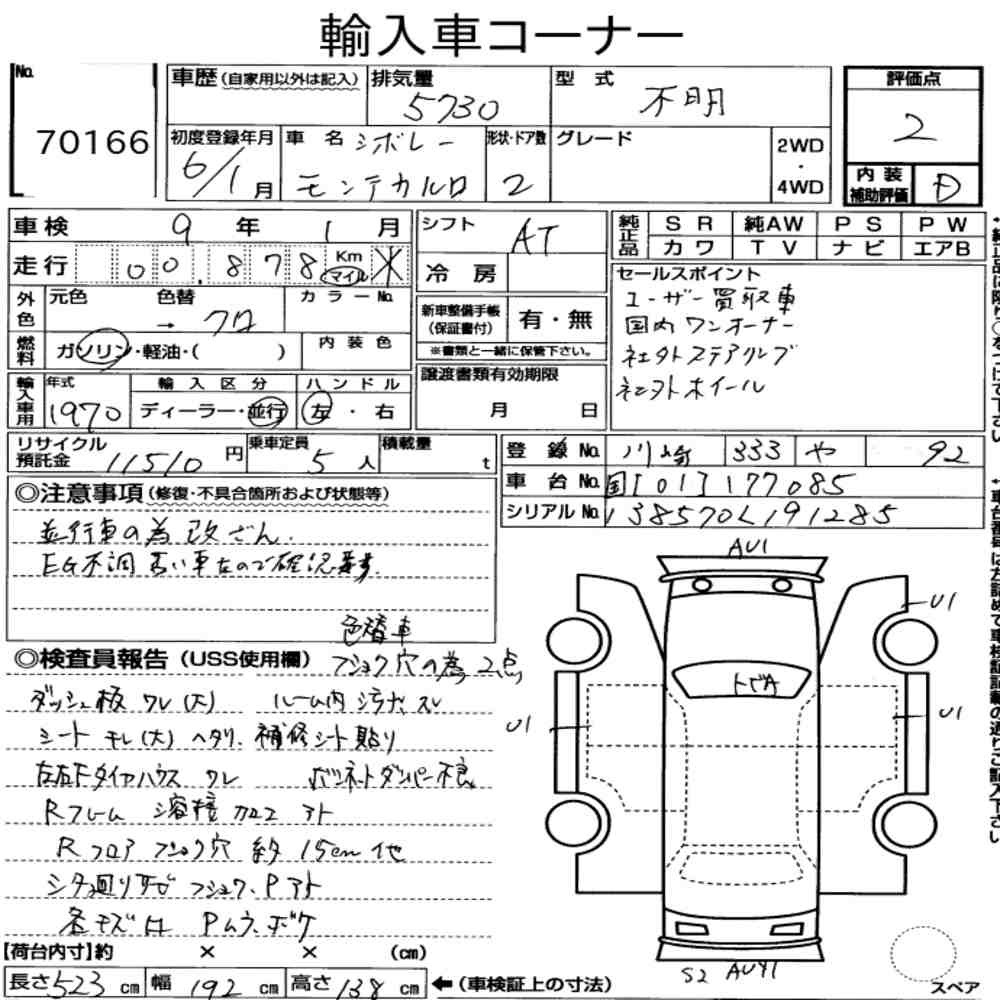 輸入車コーナー
No.
70166
車歴 (自家用以外は記入)
排気量
5730
型式
不明
評価点
2
初度登録年月
6/1月
車名
シボレー
モンテカルロ
形状・ドア数
2
グレード
2WD
・
4WD
内装
補助評価
D
車検 9年 1月
走行 00.878 Km マイル
シフト
AT
冷房
純正品
SR 純AW PS PW
カワ TV ナビ エアB
外色
元色 色替 カラーNo.
→ クロ
燃料
ガソリン・軽油・( )
内装色
新車整備手帳
(保証書付)
有・無
※書類と一緒に保管下さい。
セールスポイント
ユーザー買取車
国内ワンオーナー
社外ステアリング
社外ホイール
輸入車用
年式
1970
輸入区分
ディーラー・並行
ハンドル
左・右
譲渡書類有効期限
月 日
リサイクル
預託金
11510円
乗車定員
5人
積載量
t
登録No. 川崎 333 や 92
車台No. 国[01]177085
シリアルNo. 138570L191285
◎注意事項 (修復・不具合箇所および状態等)
並行車の為 改ざん.
EG不調 古い車なので確認要す.
◎検査員報告 (USS使用欄)
色替車
フショク穴の為2点
ダッシュ板ワレ(大) ルーム内 汚れ、スレ
シートキレ(大) ヘタリ、補修シート貼り
左右Fタイヤハウス ワレ
ボンネットダンパー不良
Rフレーム 溶接加工アト
Rフロア フショク穴 約15cm他
シタ廻りサビ フショク、Pアト
各キズ凹 Pムラ、ボケ
AU1
U1
トビA
U1
U1
S2 AUY1
スペア
【荷台内寸】約 × × (cm)
長さ523cm 幅192cm 高さ138cm ←(車検証上の寸法)